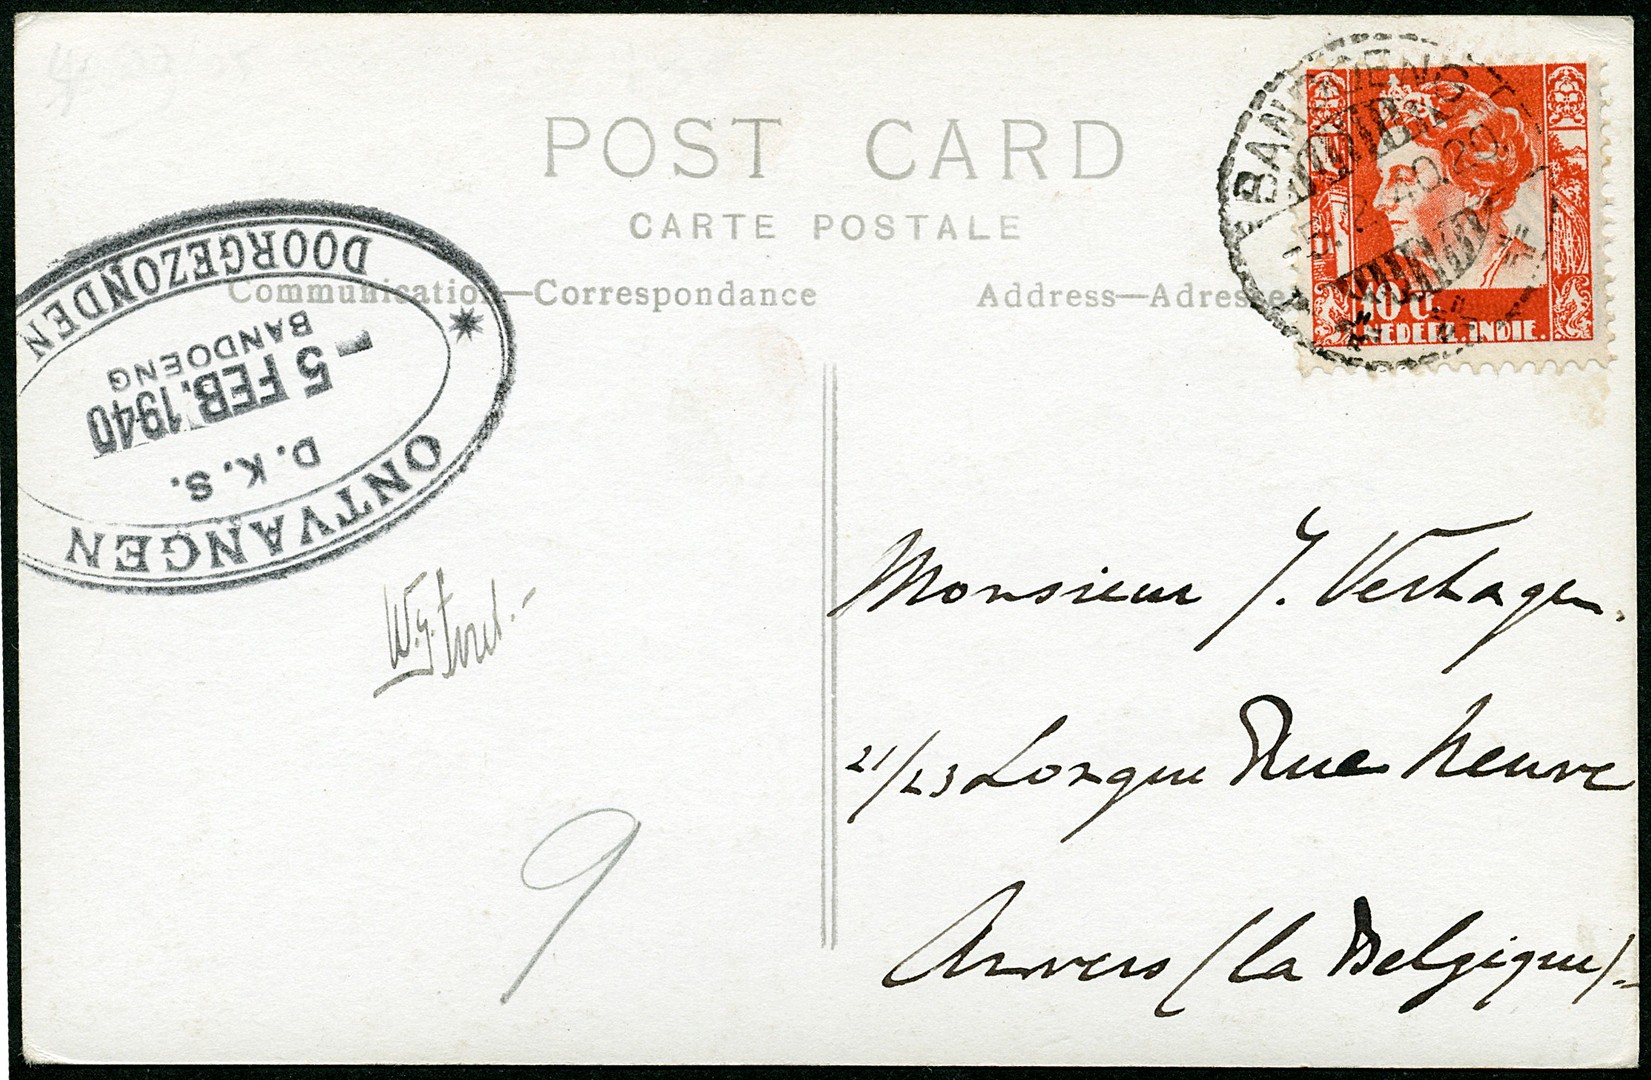 POST CARD
CARTE POSTALE
Communication—Correspondance
Address—Adresse
BANDOENG
10 c
NEDERL. INDIE.
ONTVANGEN
D. K. S.
5 FEB. 1940
BANDOENG
DOORGEZONDEN
Monsieur J. Verhagen.
21/23 Longue Rue Neuve
Anvers (la Belgique)
9